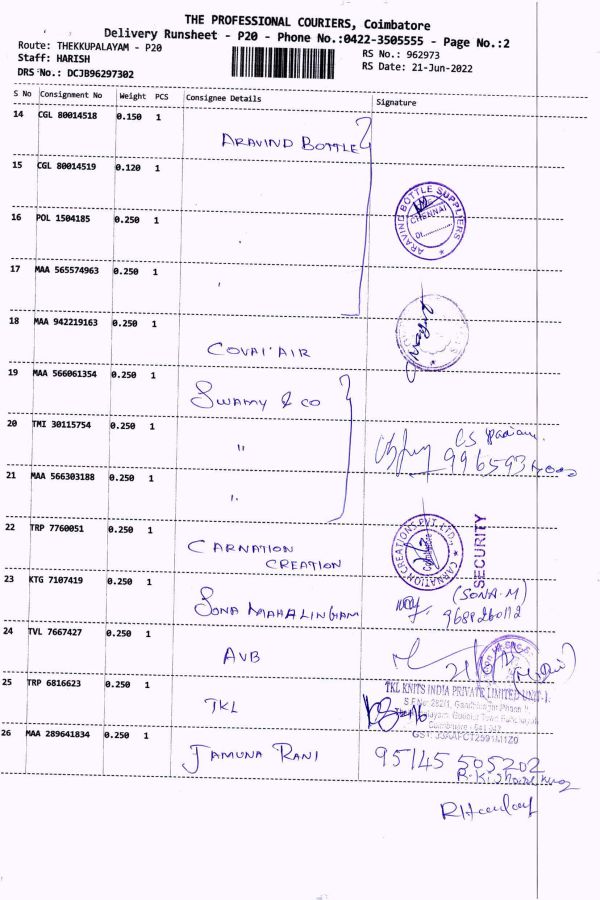 THE PROFESSIONAL COURIERS, Coimbatore
Delivery Runsheet - P20 - Phone No.:0422-3505555 - Page No.:2
Route: THEKKUPALAYAM - P20
RS No.: 962973
Staff: HARISH
RS Date: 21-Jun-2022
DRS No.: DCJB96297302
S No Consignment No Weight PCS Consignee Details Signature
14 CGL 80014518 0.150 1 ARAVIND BOTTLE
15 CGL 80014519 0.120 1
ARAVIND BOTTLE SUPPLIERS
CHENNAI
16 POL 1504185 0.250 1
17 MAA 565574963 0.250 1
18 MAA 942219163 0.250 1 COVAI AIR
19 MAA 566061354 0.250 1 SWAMY & CO
20 TMI 30115754 0.250 1 "
21 MAA 566303188 0.250 1 "
22 TRP 7760051 0.250 1 CARNATION CREATION
CARNATION CREATIONS PVT. LTD.,
Coimbatore
SECURITY
23 KTG 7107419 0.250 1 SONA MAHALINGAM
(SONA-M)
24 TVL 7667427 0.250 1 AVB
25 TRP 6816623 0.250 1 TKL
TKL KNITS INDIA PRIVATE LIMITED
26 MAA 289641834 0.250 1 JAMUNA RANI
95145 505202